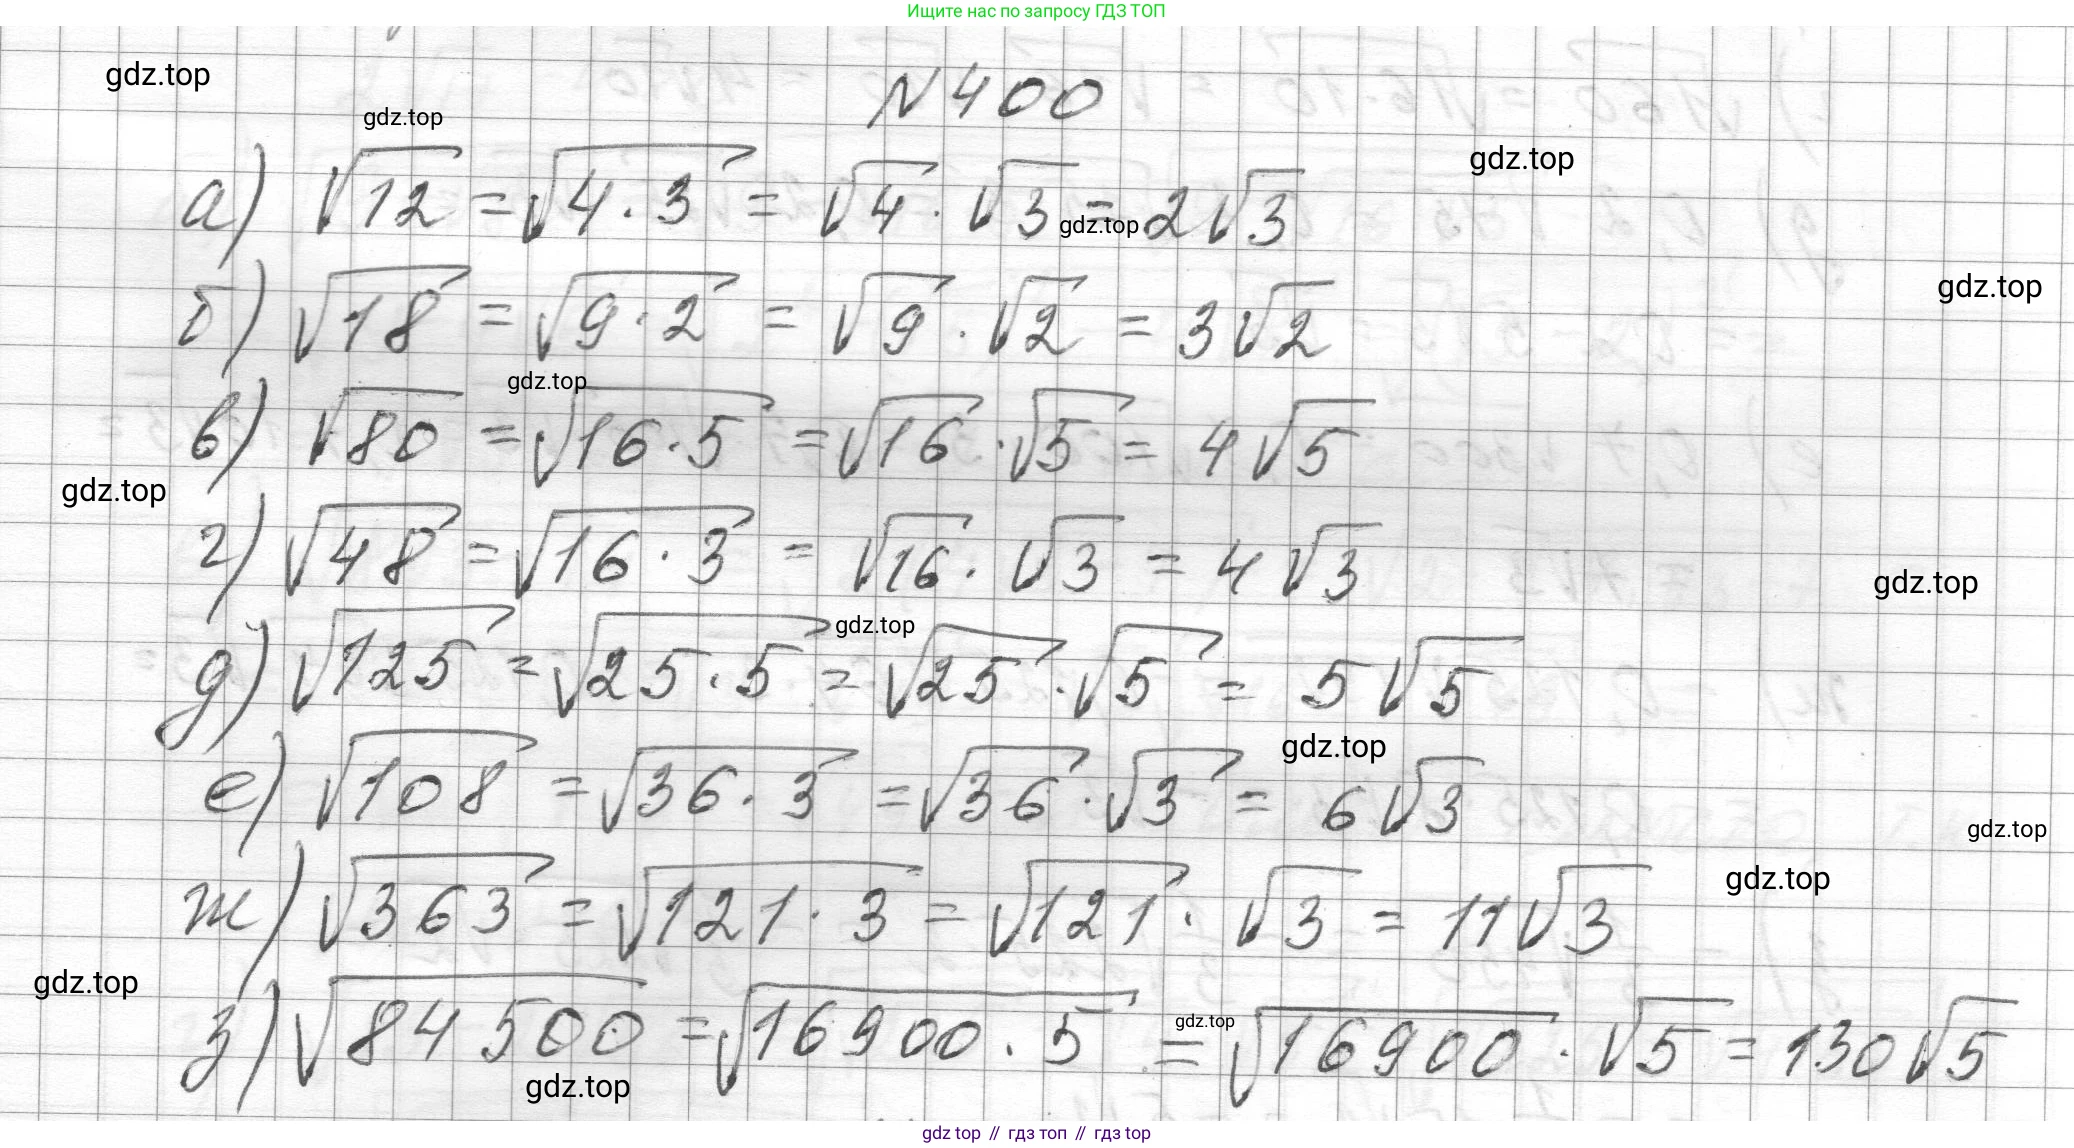 Ищите нас по запросу ГДЗ ТОП
gdz.top
N 400
gdz.top
gdz.top
а) √12 = √4·3 = √4 · √3 = 2√3
gdz.top
gdz.top
б) √18 = √9·2 = √9 · √2 = 3√2
gdz.top
в) √80 = √16·5 = √16 · √5 = 4√5
gdz.top
г) √48 = √16·3 = √16 · √3 = 4√3
gdz.top
gdz.top
д) √125 = √25·5 = √25 · √5 = 5√5
gdz.top
е) √108 = √36·3 = √36 · √3 = 6√3
gdz.top
gdz.top
ж) √363 = √121·3 = √121 · √3 = 11√3
gdz.top
з) √84500 = √16900·5 = √16900 · √5 = 130√5
gdz.top
gdz.top
gdz top // гдз топ // gdz top